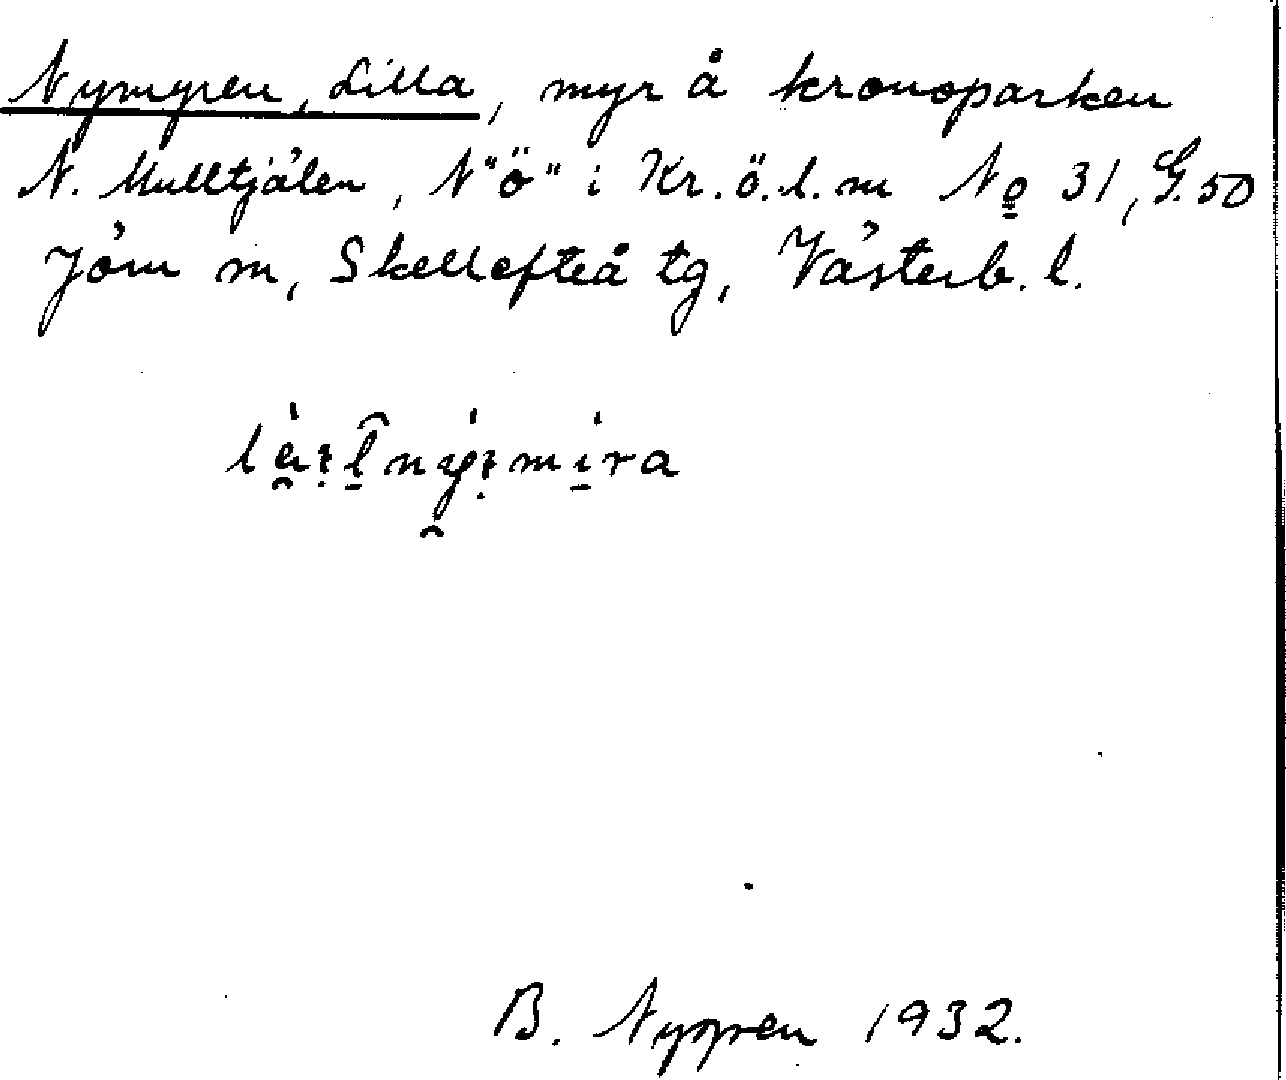 Nymyren, Lilla, myr å kronoparken
N. Mulltjälen, N "ö" i Kr. ö. l. m No 31, G. 50
Jörn m, Skellefteå tg, Västerb. l.
B. Nygren 1932.